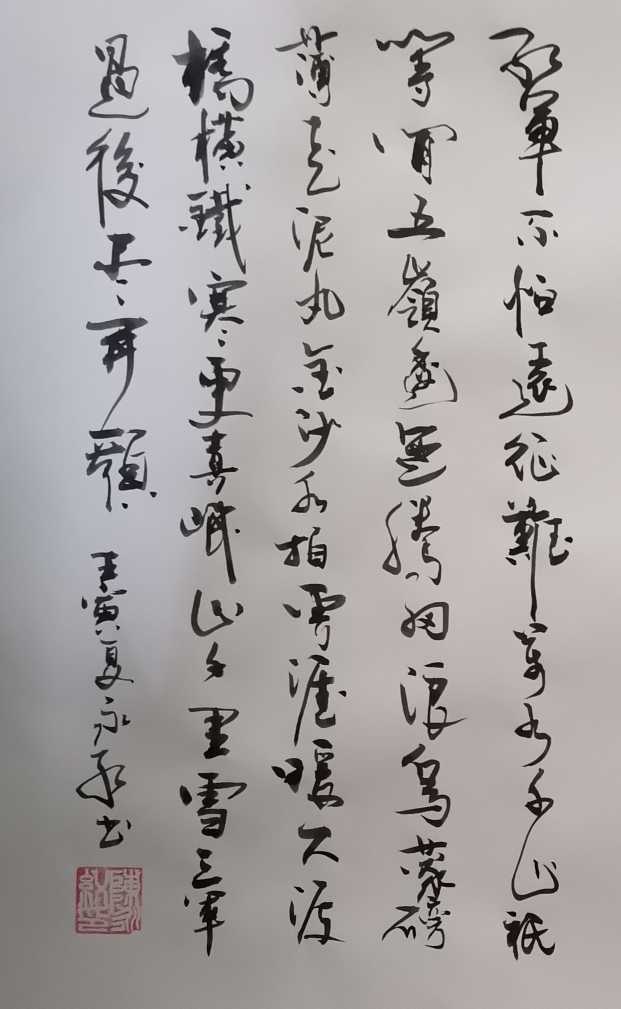 紅軍不怕遠征難萬水千山祇
等閒五嶺逶迤騰細浪烏蒙磅
薄走泥丸金沙水拍雲崖暖大渡
橋橫鐵索寒更喜岷山千里雪三軍
過後盡開顏
壬寅夏永紅書